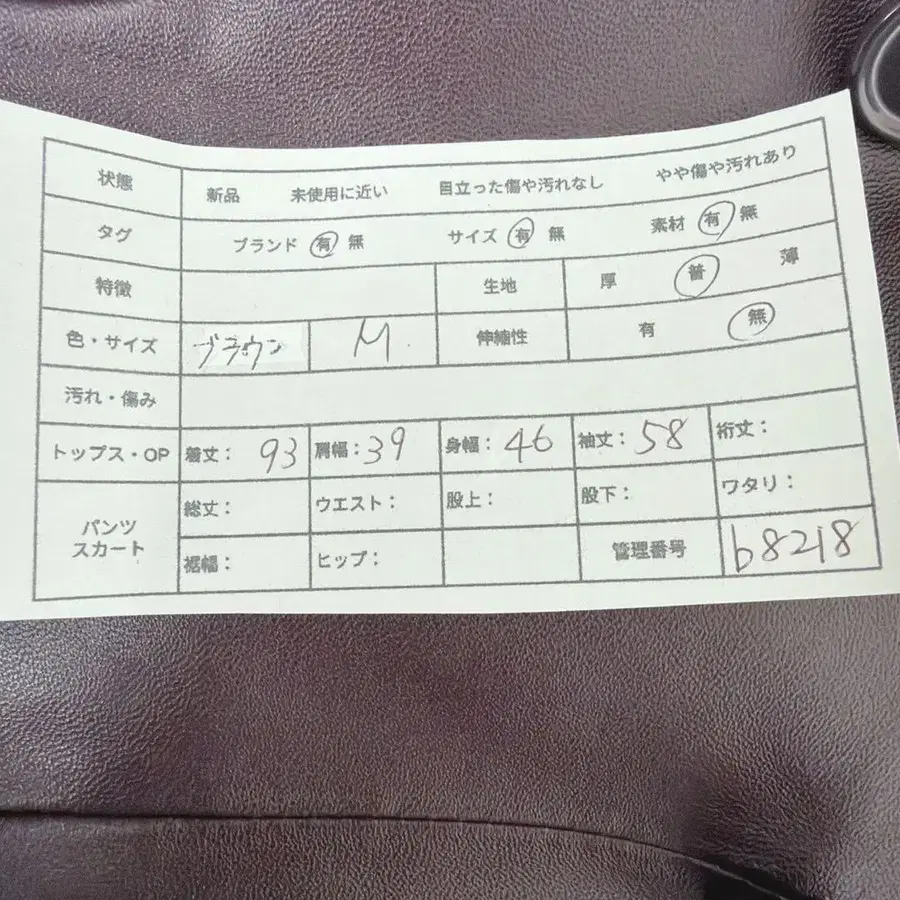 状態 新品 未使用に近い 目立った傷や汚れなし やや傷や汚れあり
タグ ブランド 有 無 サイズ 有 無 素材 有 無
特徴 生地 厚 普 薄
色・サイズ ブラウン M 伸縮性 有 無
汚れ・傷み
トップス・OP 着丈: 93 肩幅:39 身幅: 46 袖丈: 58 裄丈:
パンツ スカート 総丈: ウエスト: 股上: 股下: ワタリ:
裾幅: ヒップ: 管理番号 b8218